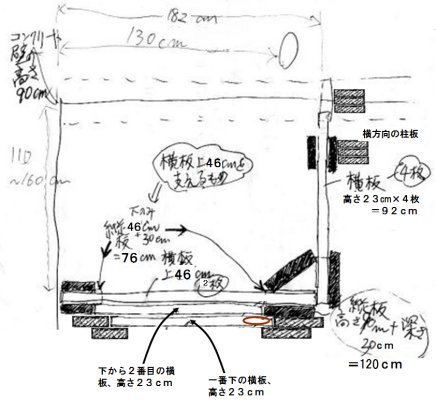 182cm
130cm
コンクリート
高さ
90cm
110
～160cm
横方向の柱板
横板
4枚
高さ２３㎝×４枚
＝９２cm
横板上46cmを
支えるもの
下のみ
縦46cm
板+30cm
=76cm
横板
上46cm
2枚
縦板
高さ
深さ
30cm
＝120cm
下から２番目の横
板、高さ２３cm
一番下の横板、
高さ２３cm